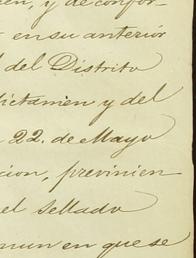 en, y de confor-
en su anterior
l del Distrito
dictamen y del
22. de Mayo
cion, previnien
el sellado
mun en que se